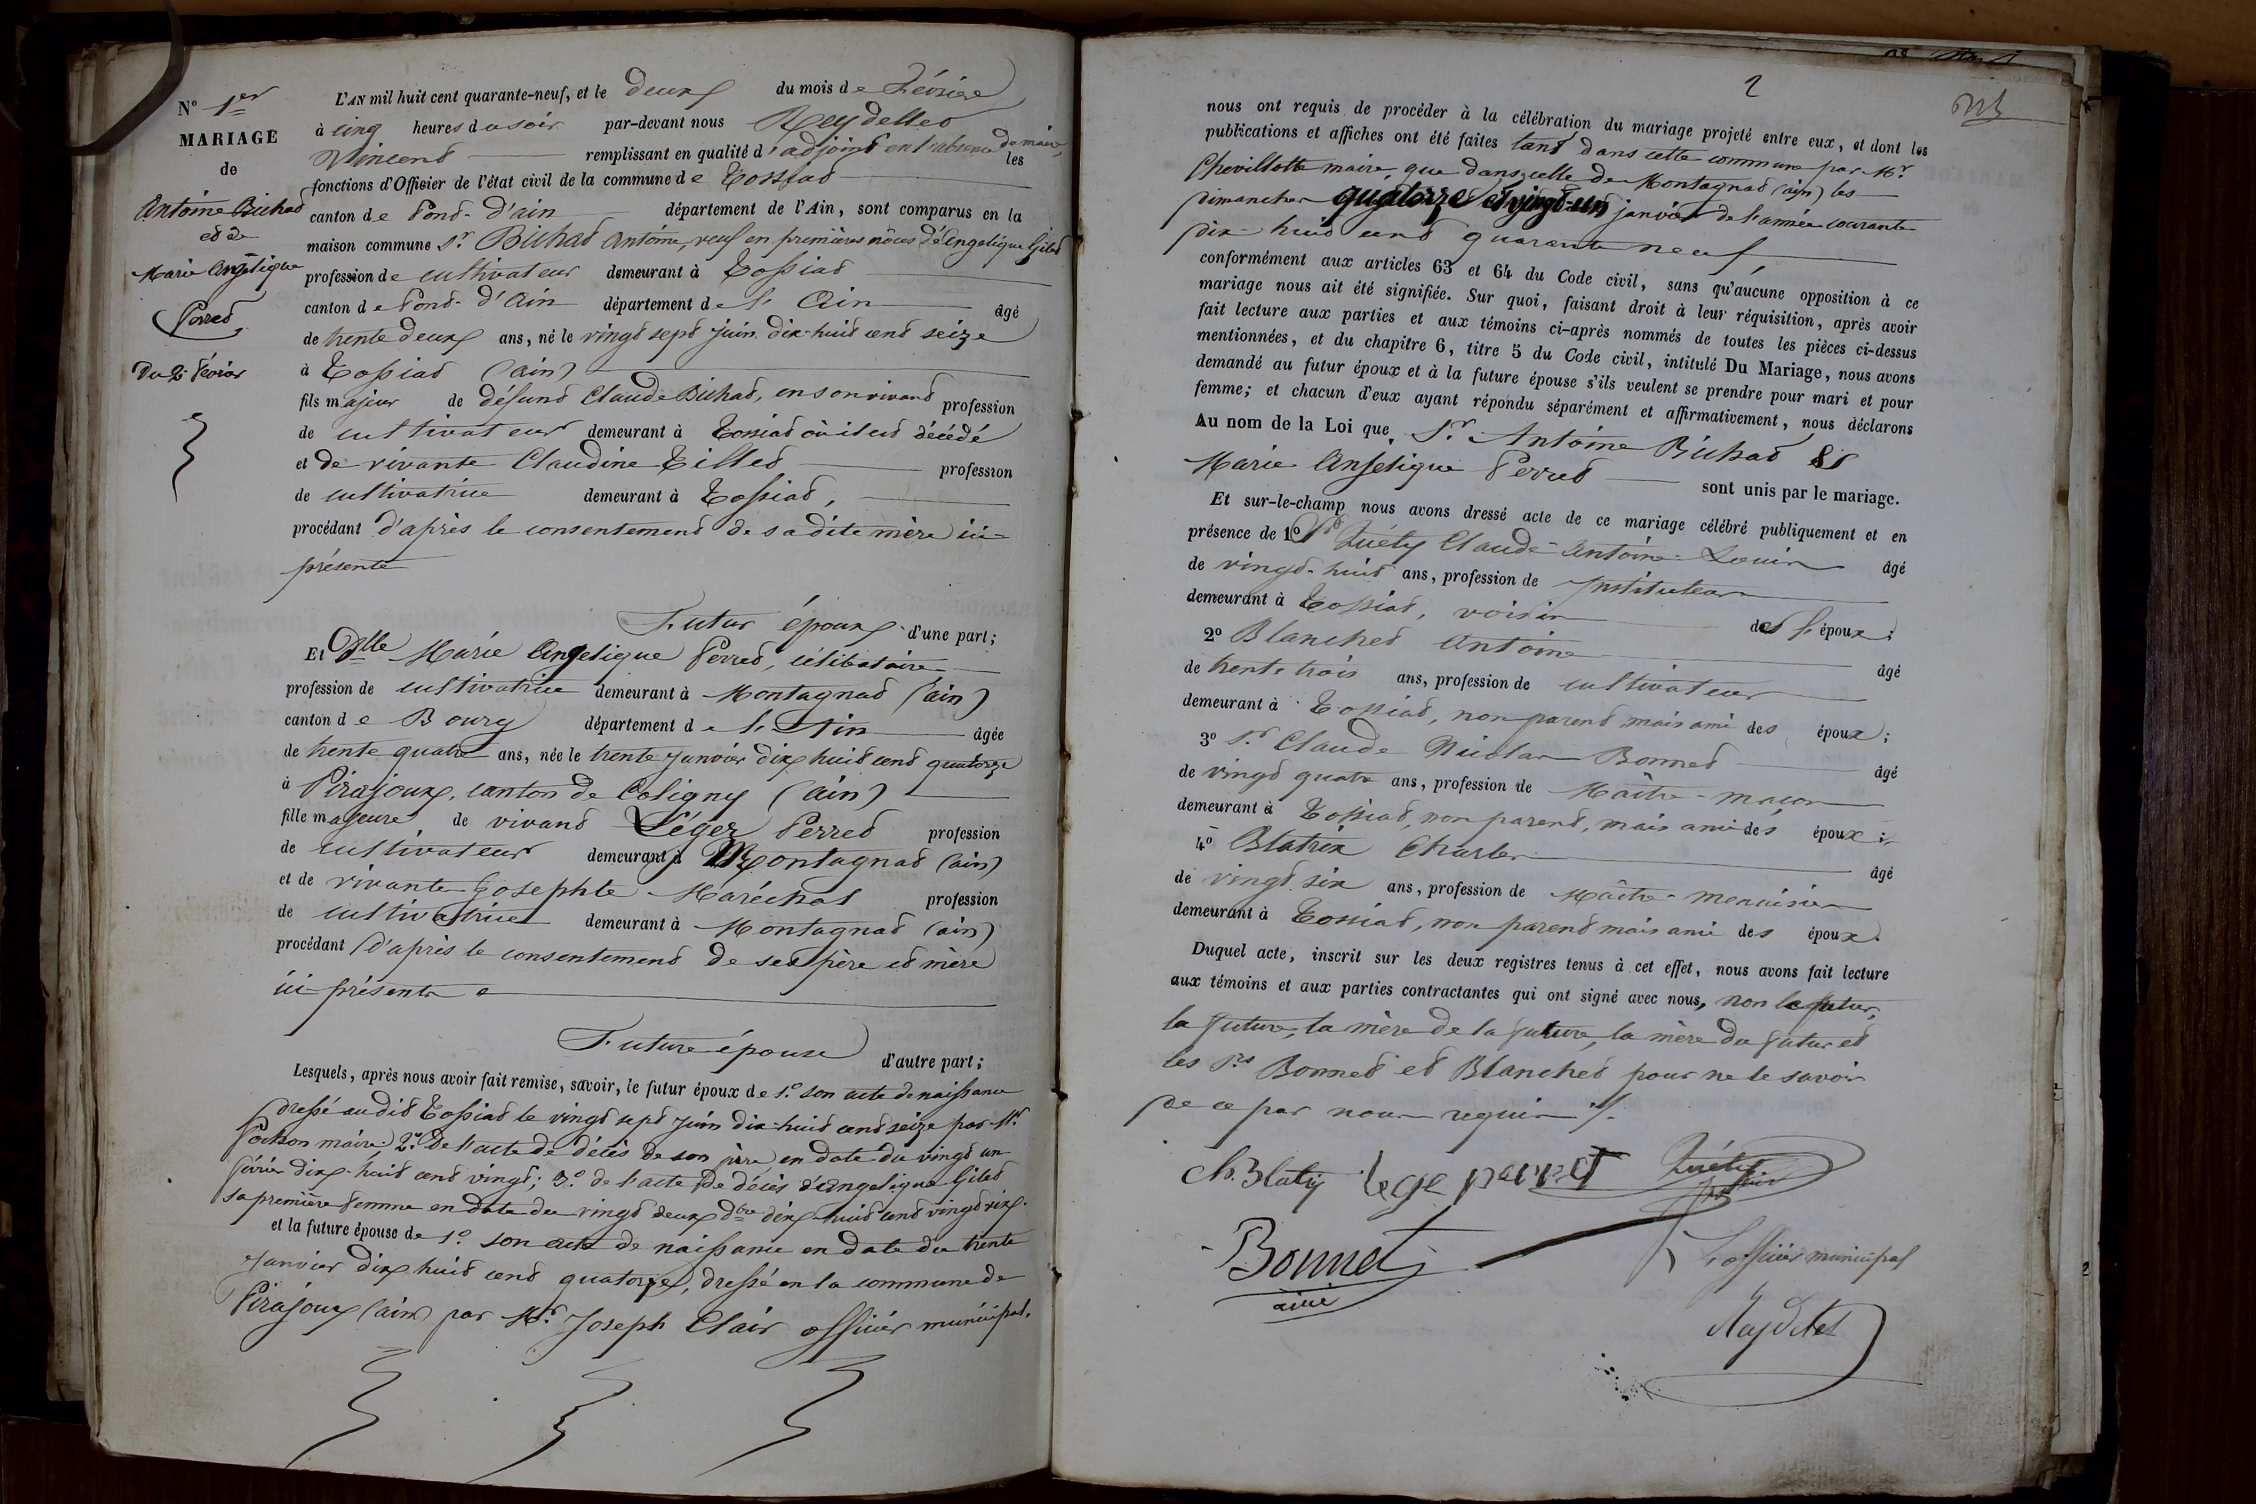 N° 1er
MARIAGE
de
Antoine Bichat
et de
Marie Angélique
Perret
Du 2 Février
L'AN mil huit cent quarante-neuf, et le deux du mois de Février
à cinq heures du soir par-devant nous Reydellet
Vincent remplissant en qualité d'adjoint en l'absence de maire, les
fonctions d'Officier de l'état civil de la commune de Tossiat
canton de Pont-d'ain département de l'Ain, sont comparus en la
maison commune Sr Bichat Antoine, veuf en premières nôces d'Angelique Gilet
profession de cultivateur demeurant à Tossiat
canton de Pont-d'Ain département de l'Ain âgé
de trente deux ans, né le vingt sept juin dix-huit cent seize
à Tossiat (ain)
fils majeur de défunt Claude Bichat, en son vivant profession
de cultivateur demeurant à Tossiat où il est décédé
et de vivante Claudine Tillet profession
de cultivatrice demeurant à Tossiat,
procédant d'après le consentement de sadite mère ici
présente
Futur époux d'une part;
Et Dlle Marie Angelique Perret, célibataire
profession de cultivatrice demeurant à Montagnat (ain)
canton de Bourg département de l'Ain âgée
de trente quatre ans, née le trente janvier dix huit cent quatorze
à Pirajoux, canton de Coligny (ain)
fille majeure de vivant Léger Perret profession
de cultivateur demeurant à Montagnat (ain)
et de vivante Josephte Maréchal profession
de cultivatrice demeurant à Montagnat (ain)
procédant d'après le consentement de ses père et mère
ici présents
Future épouse d'autre part;
Lesquels, après nous avoir fait remise, savoir, le futur époux de 1° son acte de naissance
dressé audit Tossiat le vingt sept juin dix-huit cent seize par Mr
Pochon maire; 2° De l'acte de décès de son père en date du vingt un
février dix-huit cent vingt; 3° de l'acte de décès d'Angelique Gilet
sa première femme en date du vingt deux dbre dix-huit cent vingt six.
et la future épouse de 1° son acte de naissance en date du trente
janvier dix huit cent quatorze, dressé en la commune de
Pirajoux (ain) par Mr Joseph Clair officier municipal.
2
nous ont requis de procéder à la célébration du mariage projeté entre eux, et dont les
publications et affiches ont été faites tant dans cette commune par Mr
Chevillotte maire, que dans celle de Montagnat (ain) les
dimanches quatorze et vingt-un janvier de l'année courante
dix-huit cent quarante neuf
conformément aux articles 63 et 64 du Code civil, sans qu'aucune opposition à ce
mariage nous ait été signifiée. Sur quoi, faisant droit à leur réquisition, après avoir
fait lecture aux parties et aux témoins ci-après nommés de toutes les pièces ci-dessus
mentionnées, et du chapitre 6, titre 5 du Code civil, intitulé Du Mariage, nous avons
demandé au futur époux et à la future épouse s'ils veulent se prendre pour mari et pour
femme; et chacun d'eux ayant répondu séparément et affirmativement, nous déclarons
Au nom de la Loi que Sr Antoine Bichat et
Marie Angelique Perret sont unis par le mariage.
Et sur-le-champ nous avons dressé acte de ce mariage célébré publiquement et en
présence de 1° Sr Quéty Claude-Antoine-Louis âgé
de vingt-huit ans, profession de Instituteur
demeurant à Tossiat, voisin de l'époux;
2° Blanchet Antoine âgé
de trente trois ans, profession de cultivateur
demeurant à Tossiat, non parent mais ami des époux;
3° Sr Claude Nicolas Bonnet âgé
de vingt quatre ans, profession de Maître-maçon
demeurant à Tossiat, non parent, mais ami des époux;
4° Blatrix Charles âgé
de vingt six ans, profession de Maître-menuisier
demeurant à Tossiat, non parent mais ami des époux.
Duquel acte, inscrit sur les deux registres tenus à cet effet, nous avons fait lecture
aux témoins et aux parties contractantes qui ont signé avec nous, non le futur,
la future, la mère de la future, la mère du futur et
les Srs Bonnet et Blanchet pour ne le savoir
de ce par nous requis ./.
Ch. Blatrix lege perret Quéty
Bonnet
ainé
L'officier municipal
Reydellet